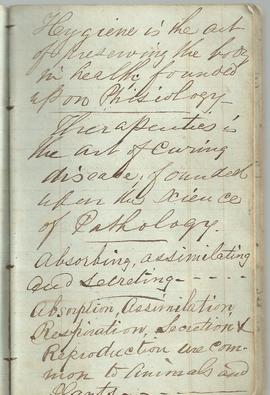 Hygiene is the art
of preserving the body
in health, founded
upon Phisiology-
Therapeutics is
the art of curing
disease, founded
upon the Science
of Pathology.
Absorbing, assimilating
and secreting-
Absorption, Assimilation,
Respiration, Secretion &
Reproduction are com-
mon to animals and
Plants